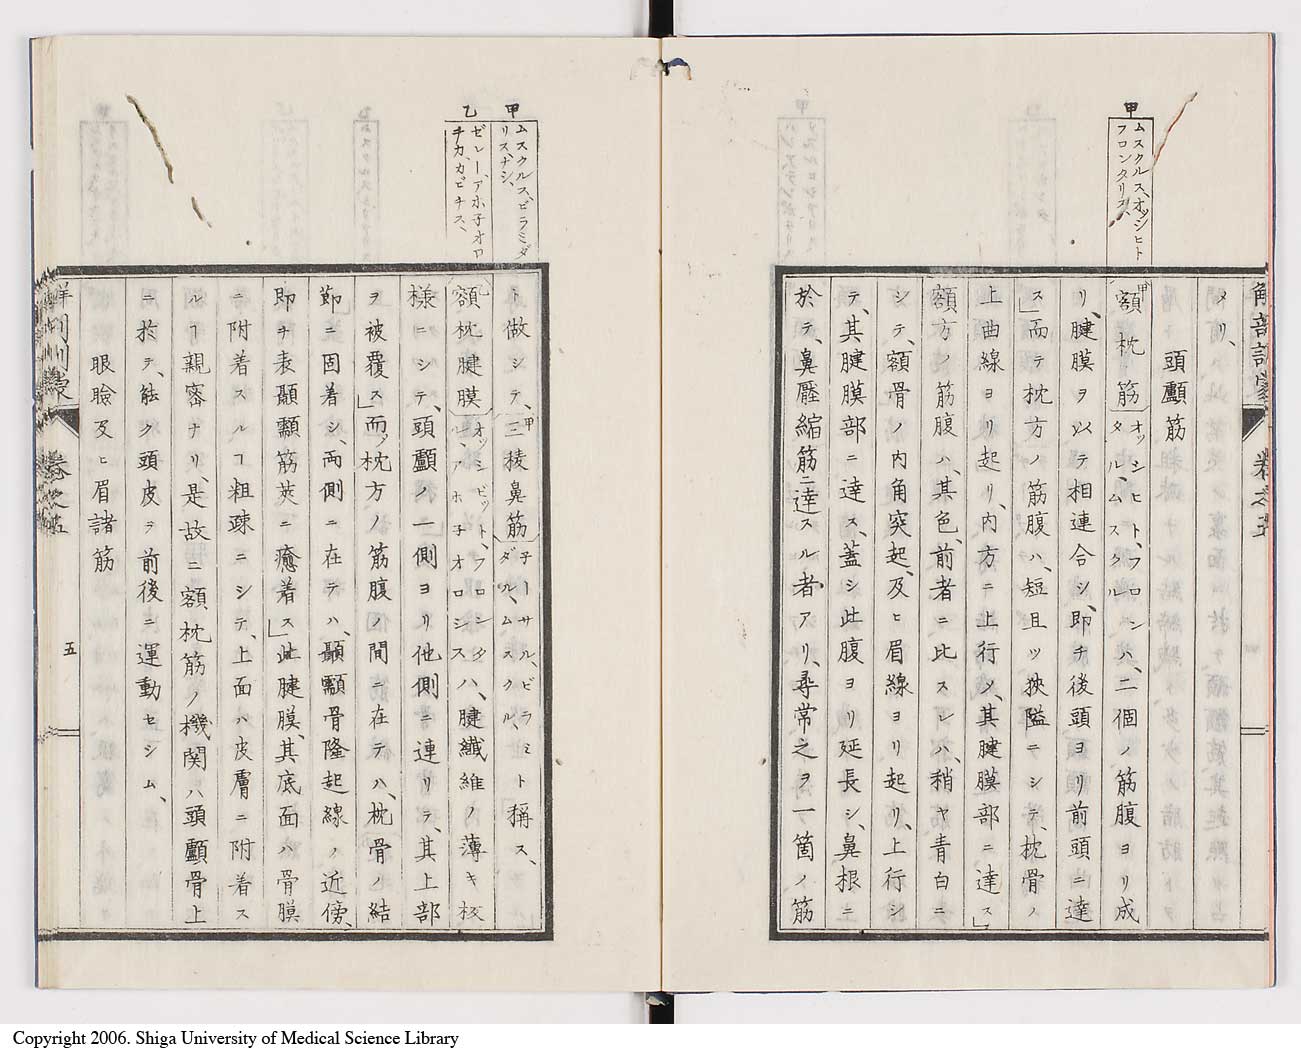 甲
ムスクルス、オッシヒト
フロンタリス、
メリ、
頭顱筋
甲額枕筋〔オッシヒト、フロン
タル、ムスクル〕ハ、二個ノ筋腹ヨリ成
リ、腱膜ヲ以テ相連合シ、即チ後頭ヨリ前頭ニ達
ス」而テ枕方ノ筋腹ハ、短且ツ狹隘ニシテ、枕骨ノ
上曲線ヨリ起リ、内方ニ上行シ、其腱膜部ニ達ス」
額方ノ筋腹ハ、其色、前者ニ比スレハ、稍ヤ青白ニ
シテ、額骨ノ内角突起、及ヒ眉線ヨリ起リ、上行シ
テ、其腱膜部ニ達ス、蓋シ此腹ヨリ延長シ、鼻根ニ
於テ、鼻壓縮筋ニ達スル者アリ、尋常之ヲ一箇ノ筋
解剖訓蒙 巻之五
甲
ムスクルス、ピラミダ
リス、ナシ、
乙
ゼレー、アホ子オロ
チカ、カピチス、
ト做シテ、甲三稜鼻筋〔子ーサル、ピラミ
ダル、ムスクル〕ト稱ス、
乙額枕腱膜〔オッシピット、フロンタ
ル、アホ子オロシス〕ハ、腱纎維ノ薄キ板
樣ニシテ、頭顱ノ一側ヨリ他側ニ連リテ、其上部
ヲ被覆ス」而ノ枕方ノ筋腹ノ間在テハ、枕骨ノ結
節ニ固着シ、両側ニ在テハ、顳顬骨隆起線ノ近傍、
即チ表顳顬筋莢ニ癒着ス」此腱膜、其底面ハ骨膜
ニ附着スルヿ粗疎ニシテ、上面ハ皮膚ニ附着ス
ルヿ親審ナリ、是故ニ額枕筋ノ機関ハ頭顱骨上
ニ於テ、能ク頭皮ヲ前後ニ運動セシム、
眼瞼及ヒ眉諸筋
巻之五
五
Copyright 2006. Shiga University of Medical Science Library